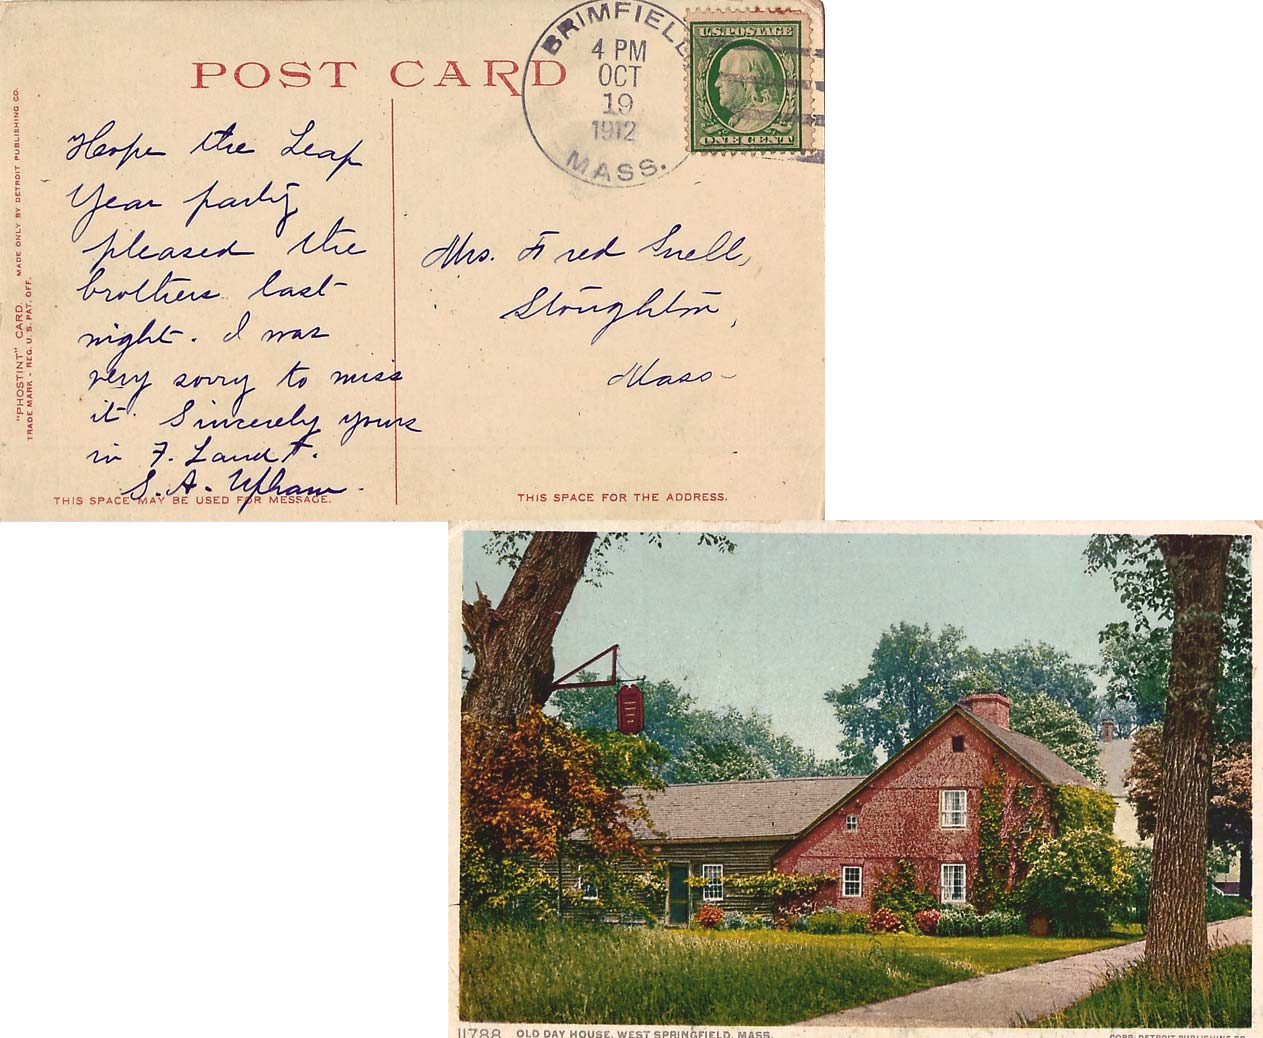 POST CARD
BRIMFIELD
4 PM
OCT
19
1912
MASS.
U.S. POSTAGE
ONE CENT
"PHOSTINT" CARD. MADE ONLY BY DETROIT PUBLISHING CO.
TRADE MARK - REG. U. S. PAT. OFF.
Hope the Leap
Year party
pleased the
brothers last
night. I was
very sorry to miss
it. Sincerely yours
in F. L. and T.
S. A. Upham.
Mrs. Fred Snell,
Stoughton,
Mass-
THIS SPACE MAY BE USED FOR MESSAGE.
THIS SPACE FOR THE ADDRESS.
11788 OLD DAY HOUSE, WEST SPRINGFIELD, MASS.
COPR. DETROIT PUBLISHING CO.